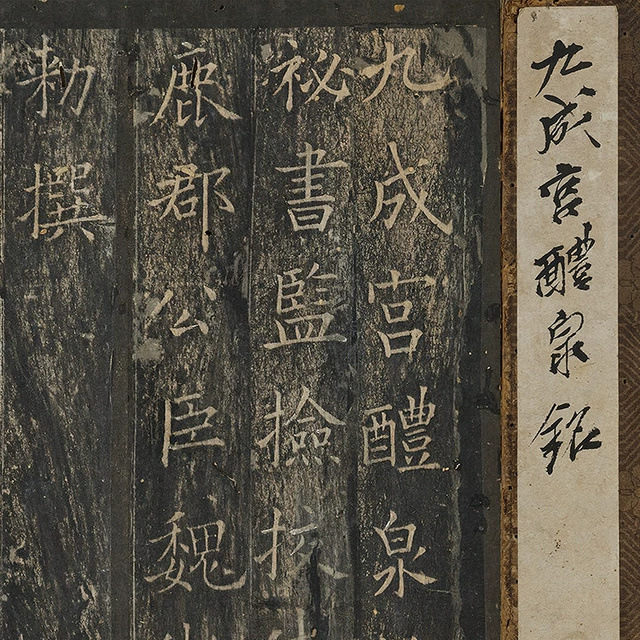 九成宮醴泉銘
九成宮醴泉
祕書監撿挍
鹿郡公臣魏
勅撰